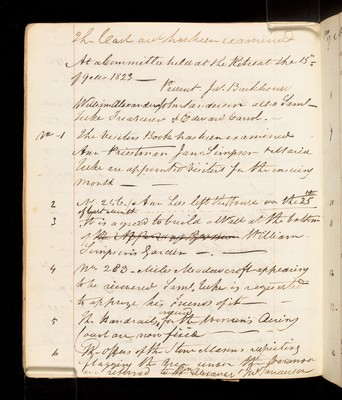 The Cash and                examined
At a Committee held at the Retreat the 15th
of 9 mo 1823 —
Present Jas. Backhouse
William Alexander John Sanderson also Saml.
Tuke Treasurer & Edward Carrol.
No 1 The Visitors Book has been examined
Ann Priestman Jane Simpson
Tuke are appointed Visitors for the ensuing
month —
2 No 256. Ann Lees left the House on the 25th
of last month
3 It is agreed to build a Wall at the bottom
of William
Simpson's Garden —
4 No 283 Miles Meadowcroft appearing
to be recovered Saml. Tuke is requested
to apprize his Friends of it —
5 The Handrails, for the Women's Airing
Court are now fixed —
6 The Offers of the Stone Masons respecting
flagging the Area under
is referred to Wm Alexander & Jn Sanderson